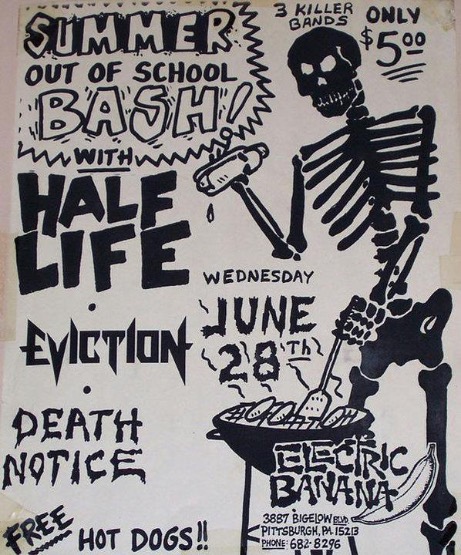 SUMMER
OUT OF SCHOOL
BASH!
WITH
3 KILLER
BANDS
ONLY
$5.00
HALF
LIFE
•
EVICTION
•
DEATH
NOTICE
WEDNESDAY
JUNE
28TH
ELECTRIC
BANANA
3887 BIGELOW BLVD
PITTSBURGH, PA. 15213
PHONE: 682-8296
FREE HOT DOGS!!